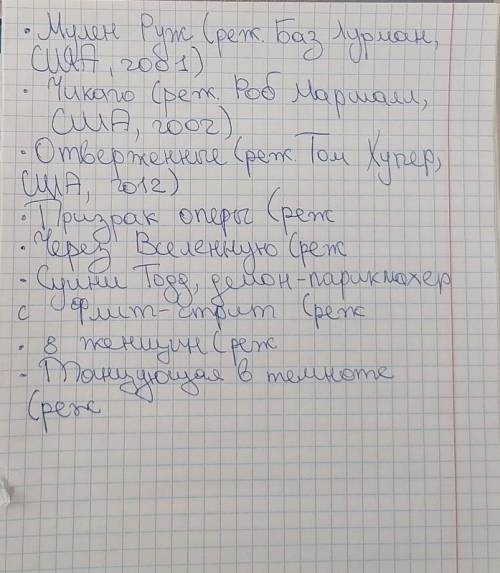 · Мулен Руж (реж. Баз Лурман,
США, 2001)
· Чикаго (реж. Роб Маршалл,
США, 2002)
· Отверженные (реж. Том Хупер,
США, 2012)
· Призрак оперы (реж
· Через Вселенную (реж
- Суини Тодд, демон-парикмахер
с Флит-стрит (реж
· 8 женщин (реж
- Танцующая в темноте
(реж